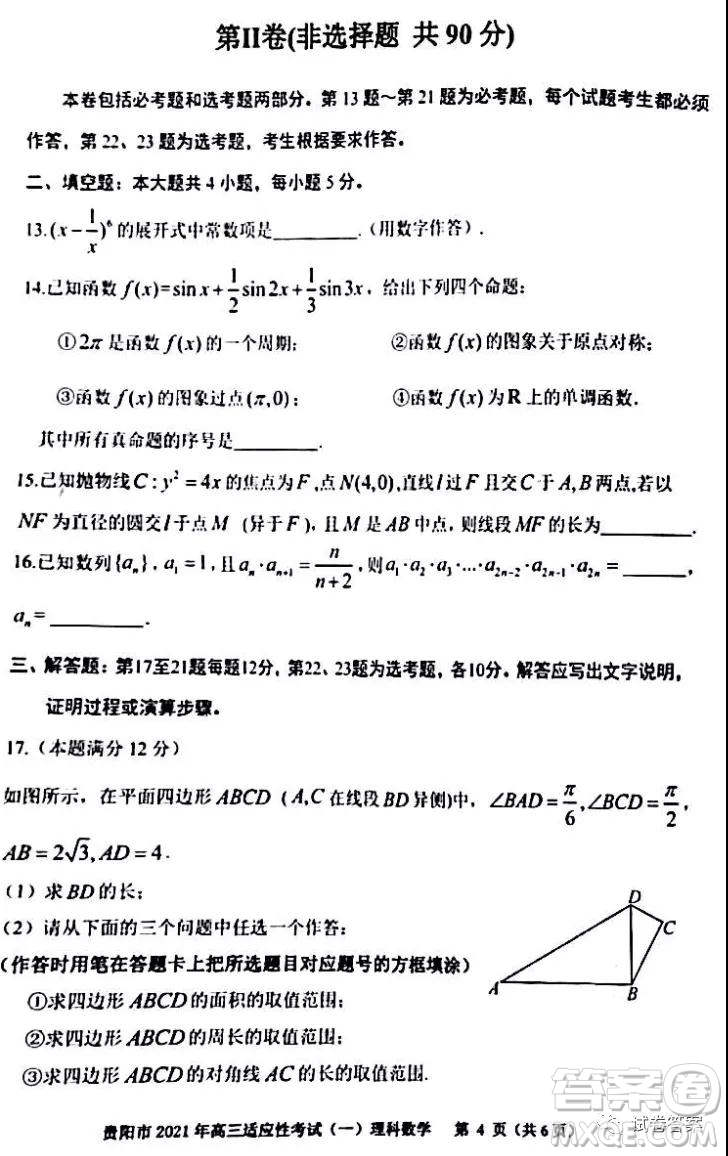 第II卷(非选择题 共 90 分)
本卷包括必考题和选考题两部分。第 13 题～第 21 题为必考题，每个试题考生都必须
作答，第 22、23 题为选考题，考生根据要求作答。
二、填空题：本大题共 4 小题，每小题 5 分。
13.(x−1/x)^6 的展开式中常数项是________.（用数字作答）.
14.已知函数 f(x)=sin x+1/2 sin 2x+1/3 sin 3x，给出下列四个命题：
①2π 是函数 f(x) 的一个周期； ②函数 f(x) 的图象关于原点对称；
③函数 f(x) 的图象过点(π,0)； ④函数 f(x) 为 R 上的单调函数.
其中所有真命题的序号是________.
15.已知抛物线 C : y²=4x 的焦点为 F ,点 N(4,0),直线 l 过 F 且交 C 于 A,B 两点,若以
NF 为直径的圆交 l 于点 M （异于 F ），且 M 是 AB 中点，则线段 MF 的长为________.
16.已知数列{aₙ}，a₁=1，且 aₙ·aₙ₊₁=n/(n+2)，则 a₁·a₂·a₃·…·a₂ₙ₋₂·a₂ₙ₋₁·a₂ₙ=______，
aₙ=________.
三、解答题：第17至21题每题12分，第22、23题为选考题，各10分。解答应写出文字说明，
证明过程或演算步骤。
17.（本题满分 12 分）
如图所示，在平面四边形 ABCD（ A,C 在线段 BD 异侧)中，∠BAD=π/6,∠BCD=π/2，
AB=2√3,AD=4.
（1）求 BD 的长；
（2）请从下面的三个问题中任选一个作答：
(作答时用笔在答题卡上把所选题目对应题号的方框填涂)
①求四边形 ABCD 的面积的取值范围；
②求四边形 ABCD 的周长的取值范围；
③求四边形 ABCD 的对角线 AC 的长的取值范围.
D
C
A
B
答案圈
试卷答案
贵阳市 2021 年高三适应性考试（一）理科数学 第 4 页（共 6 页）